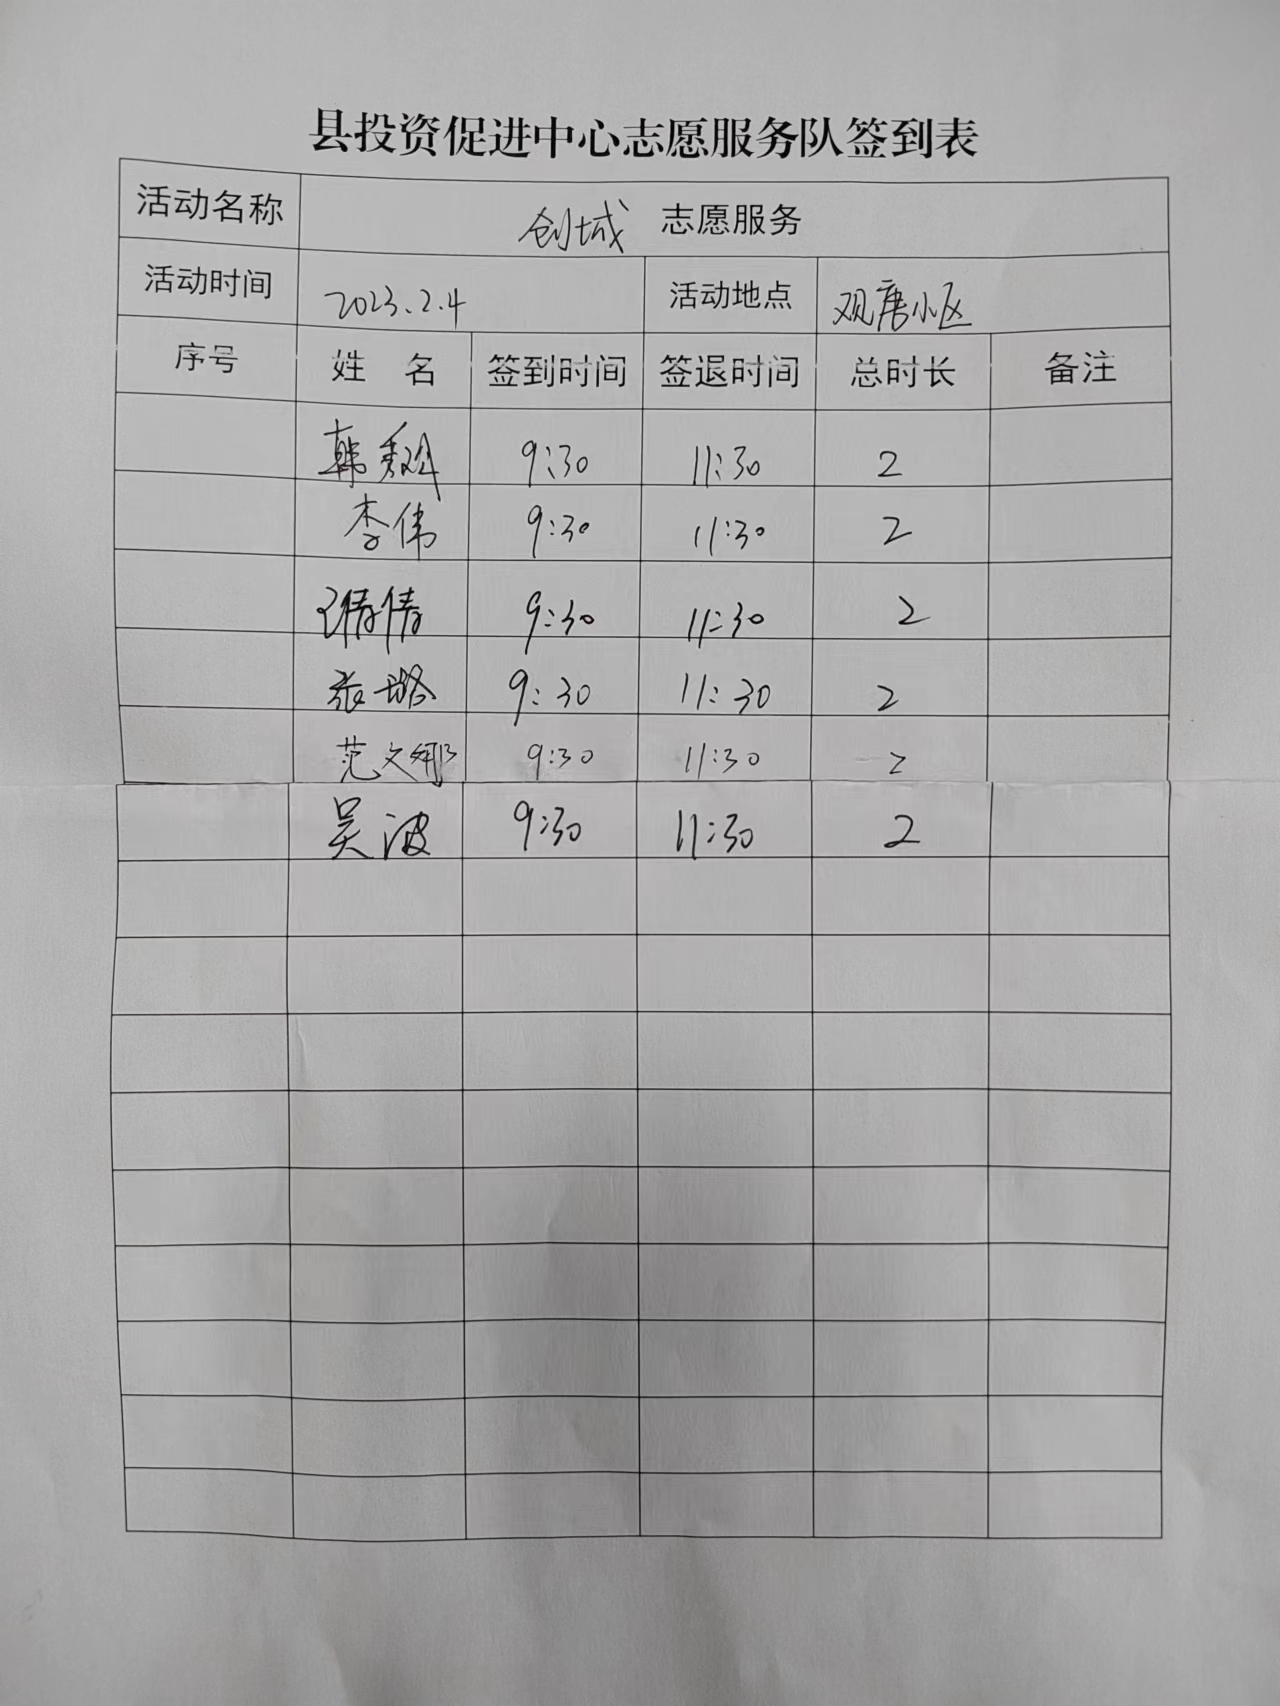 县投资促进中心志愿服务队签到表
活动名称 创城 志愿服务
活动时间 2023.2.4 活动地点 观唐小区
序号 姓名 签到时间 签退时间 总时长 备注
韩 9:30 11:30 2
李伟 9:30 11:30 2
王倩倩 9:30 11:30 2
张璐 9:30 11:30 2
范文娜 9:30 11:30 2
吴波 9:30 11:30 2